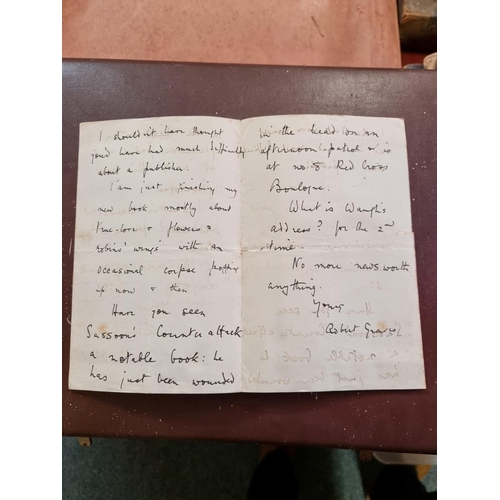 I shouldn't have thought
you'd have had much difficulty
about a publisher.
I am just finishing my
new book mostly about
true-love & flowers &
robins' wings with an
occasional corpse popping
up now & then
Have you seen
Sassoon's Counterattack
a notable book: he
has just been wounded
in the head on an
afternoon patrol & is
at no 8 Red Cross
Boulogne.
What is Waugh's
address? for the 2nd
time.
No more news worth
anything.
Yours
Robert Graves